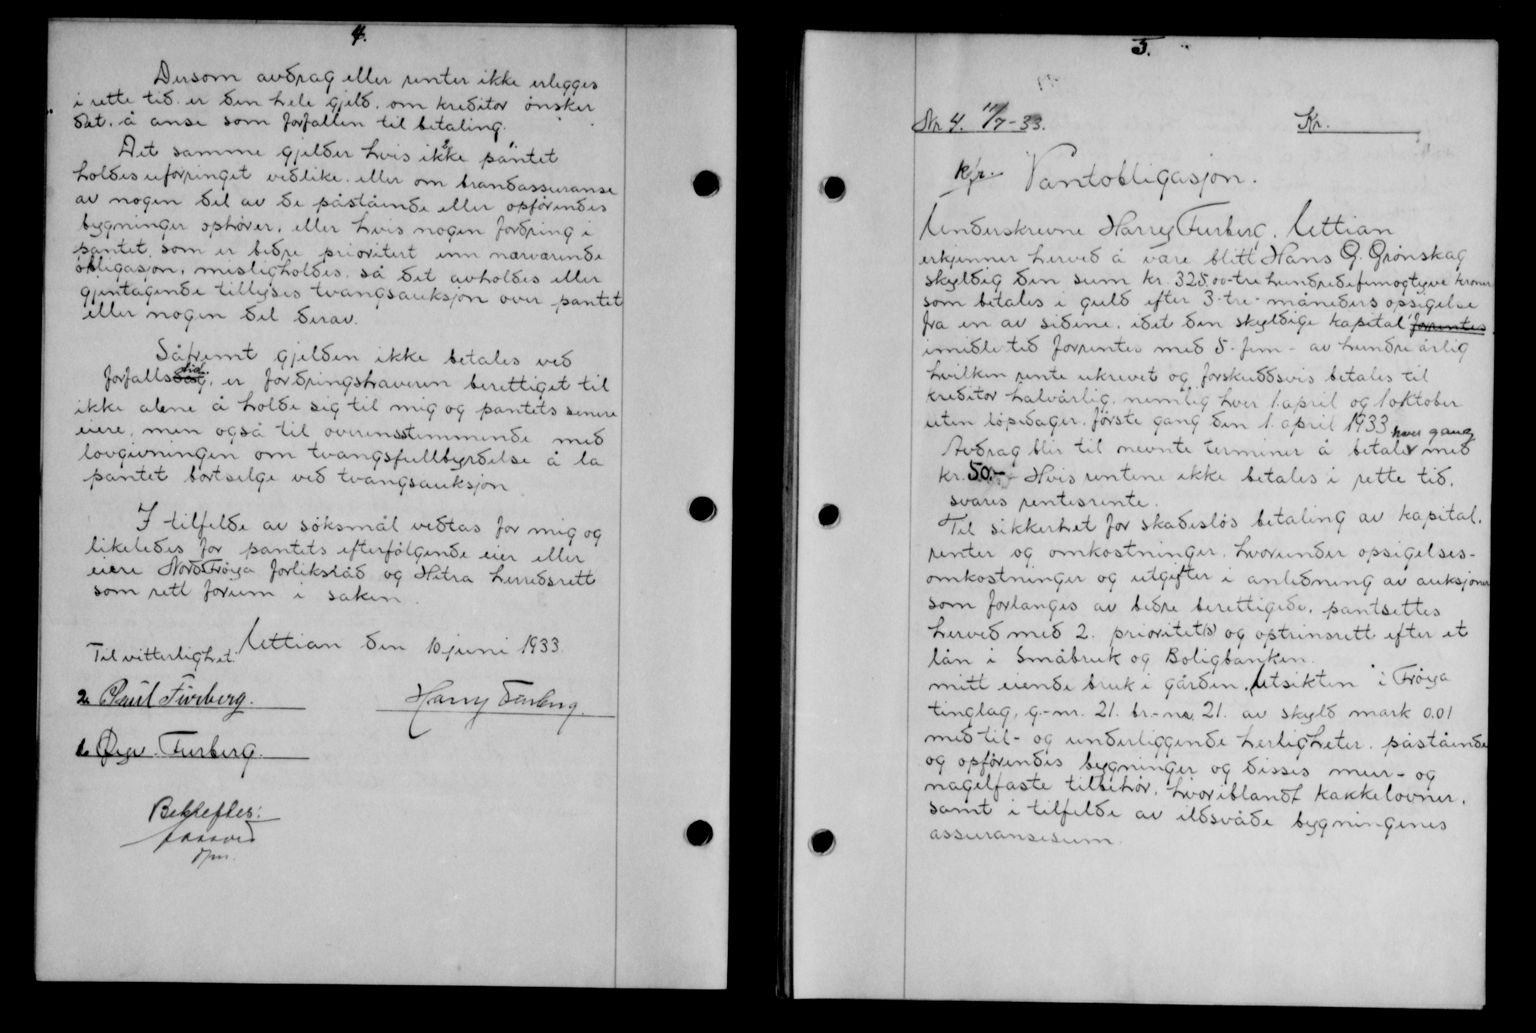 4.
Dersom avdrag eller renter ikke erlegges
i rette tid. er den hele gjeld. om kreditor ønsker
det. å anse som forfallen til betaling.
Det samme gjelder hvis ikke pantet
holdes uforringet vedlike. eller om brandassuranse
av nogen del av de påstående eller opførendes
bygninger ophører, eller hvis nogen fordring i
pantet, som er bedre prioritert enn nærværende
obligasjon, misligholdes. så det avholdes eller
gjentagende tillyses tvangsauksjon over pantet
eller nogen del derav.
Såfremt gjelden ikke betales ved
forfallstid, er fordringshaveren berettiget til
ikke alene å holde sig til mig og pantets senere
eiere, men også til overensstemmende med
lovgivningen om tvangsfullbyrdelse å la
pantet bortselge ved tvangsauksjon
I tilfelde av søksmål vedtas for mig og
likeledes for pantets efterfølgende eier eller
eiere Nord Frøya forliksråd og Hitra herredsrett
som rett forum i saken.
Uttian den 10 juni 1933.
Til vitterlighet:
2. Paul Furberg.
Harry Furberg.
1. Furberg.
Bekreftes:
5.
Nr 4. 11/7-33.
Kr.
Kfr.
Pantobligasjon.
Underskrevne Harry Furberg, Uttian
erkjenner herved å være blitt Hans G. Grønskag
skyldig den sum kr. 325,00-tre hundredefemogtyve kroner
som betales i guld efter 3-tre-måneders opsigelse
fra en av sidene. idet den skyldige kapital forrentes
imidlertid forrentes med 5-fem- av hundre årlig
hvilken rente ukrevet og forskuddsvis betales til
kreditor halvårlig, nemlig hver 1. april og 1 oktober
uten løpedager. første gang den 1. april 1933
Avdrag blir til nevnte terminer å betale hver gang med
kr. 50.- Hvis rentene ikke betales i rette tid.
svares rentesrente.
Til sikkerhet for skadesløs betaling av kapital.
renter og omkostninger, hvorunder opsigelses-
omkostninger og utgifter i anledning av auksjoner
som forlanges av bedre berettigede, pantsettes
herved med 2. prioritet(s) og optrinsrett efter et
lån i Småbruk og Boligbanken.
mitt eiende bruk i gården, Utsikten i Frøya
tinglag, g-nr. 21. br.-nr. 21. av skyld mark 0.01
med til- og underliggende herligheter. påstående
og opførendes bygninger og disses mur- og
nagelfaste tilbehør, hvoriblandt kakkelovner,
samt i tilfelde av ildsvåde bygningenes
assuransesum.